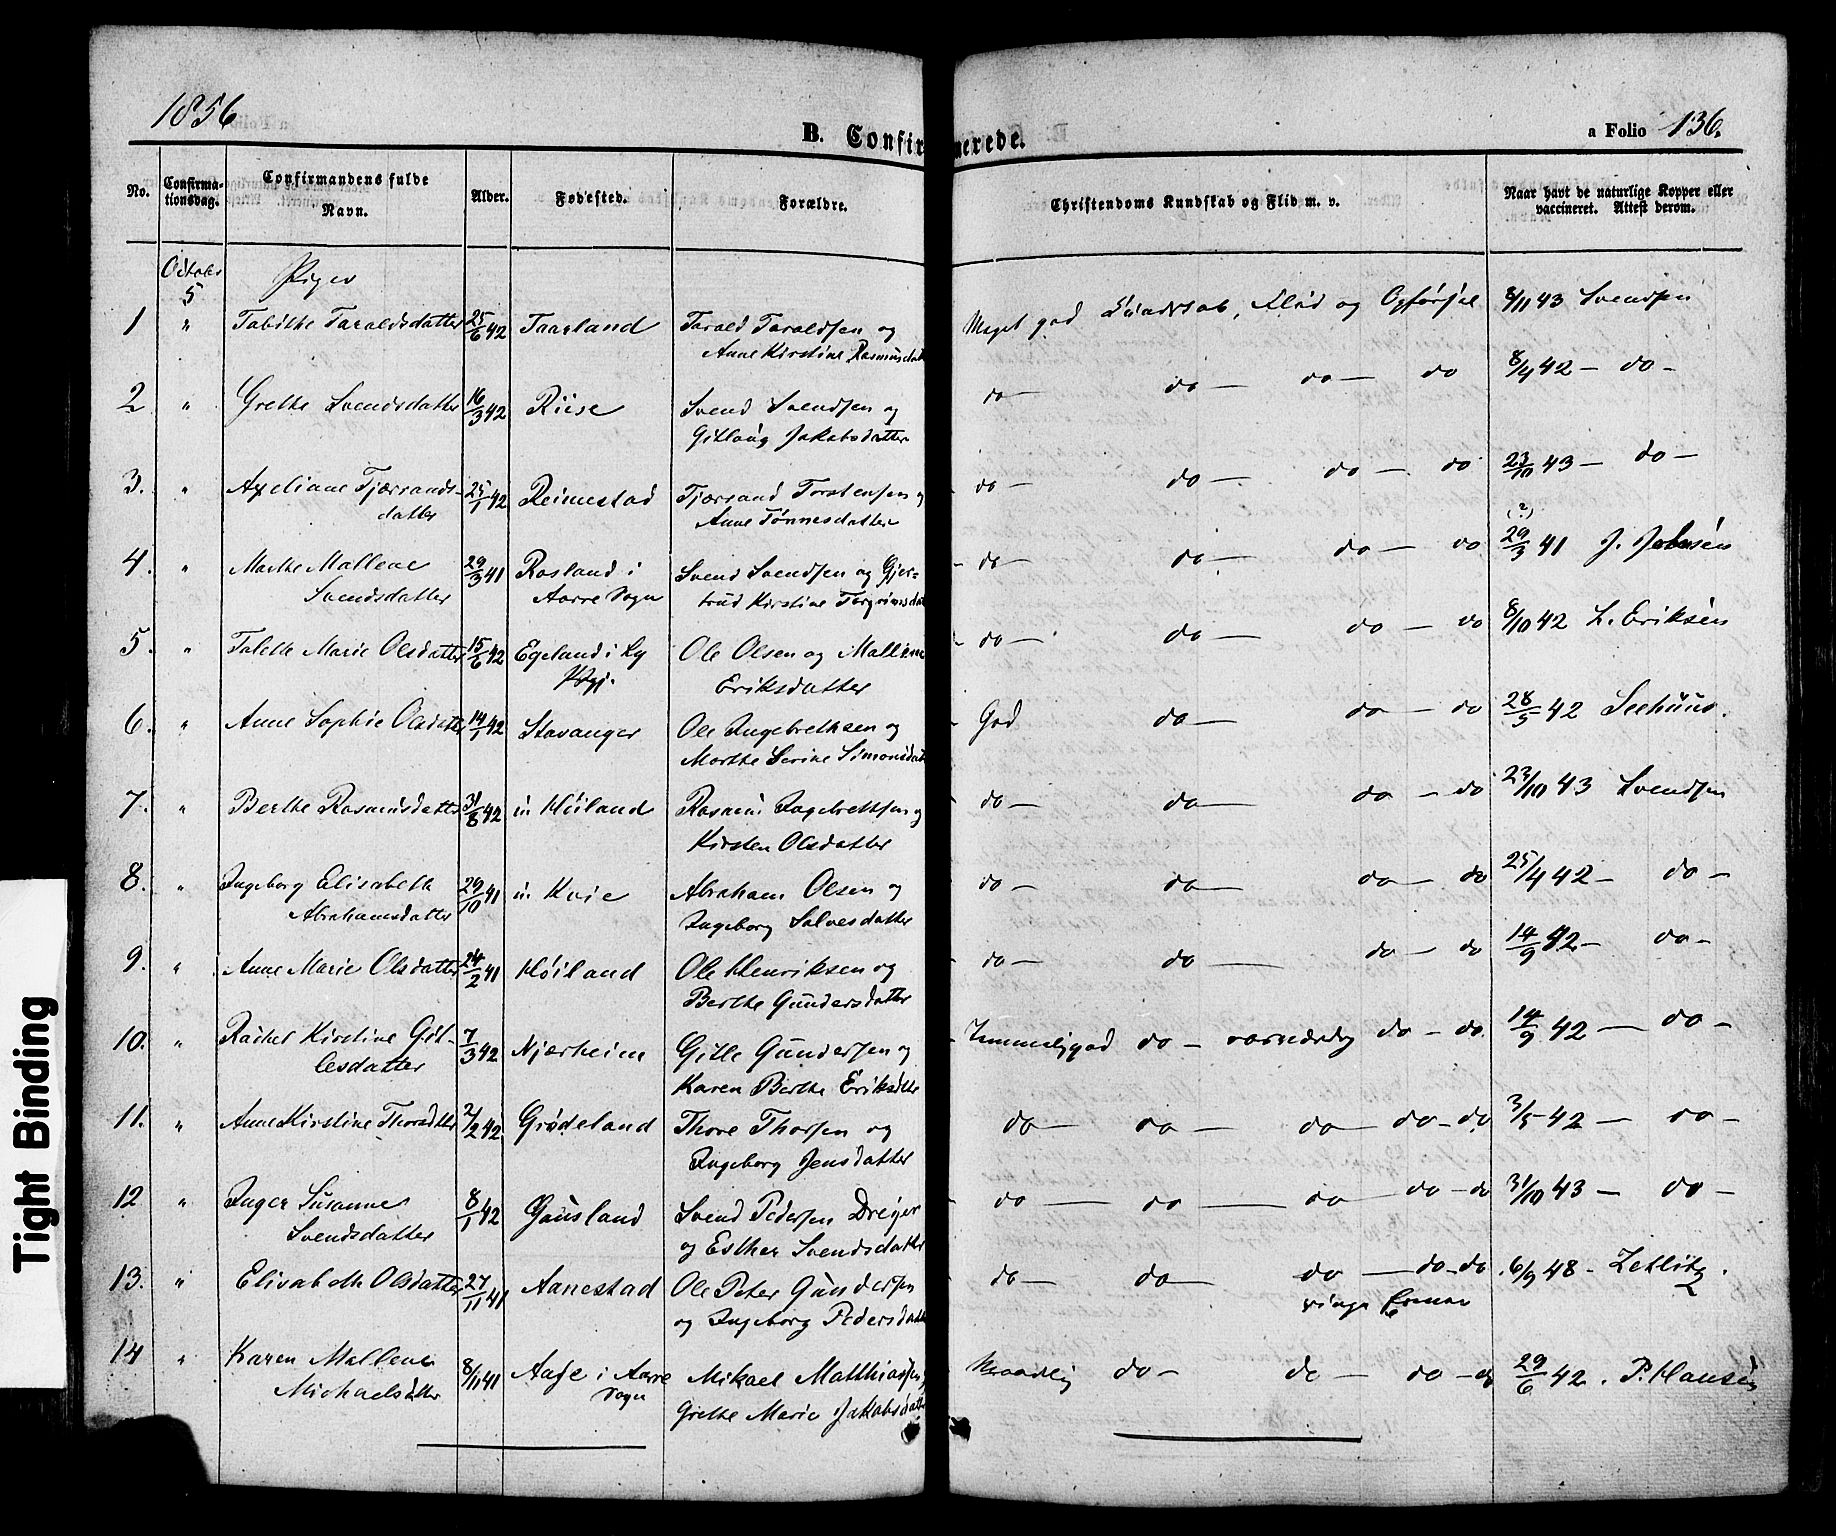 1856
B. Confirmerede.
a Folio 136.
No.
Confirma-
tionsdag.
Confirmandens fulde
Navn.
Alder.
Fødested.
Forældre.
Christendoms Kundskab og Flid m. v.
Naar havt de naturlige Kopper eller
vaccineret. Attest derom.
October
5
Piger
1 " Tabithe Taraldsdatter 25/6 42 Taarland Tarald Taraldsen og
Anne Kirstine Rasmusdatt
Meget god Kundskab, Flid og Opførsel 8/11 43 Svendsen
2 " Grethe Svendsdatter 16/3 42 Riise Svend Svendsen og
Gitlaug Jakobsdatter
do — do — do — do 8/9 42 — do —
3. " Axeliane Tjærrands-
datter 25/1 42 Reimestad Tjærrand Torstensen og
Anne Tønnesdatter
do — do — do — do 23/10 43 — do —
4. " Marthe Mallene
Svendsdatter 29/3 41 Rosland i
Aarre Sogn Svend Svendsen og Gjer-
trud Kirstine Torgrimsdat
do — do — do — do (?) 29/3 41 J. Johnsen
5. " Talette Marie Olsdatter 15/6 42 Egeland i Ly
Prgj. Ole Olsen og Mallene
Eriksdatter
do — do — do — do 8/10 42 L. Eriksen
6. " Anne Sophie Olsdatter 14/1 42 Stavanger Ole Ingebrethsen og
Marthe Serine Simonsdat
God do — do — do 28/5 42 Seehuus.
7. " Berthe Rasmusdatter 31/8 42 u. Høiland Rasmus Ingebrethsen og
Kirsten Olsdatter
do — do — do — do 23/10 43 Svendsen
8. " Ingeborg Elisabeth
Abrahamsdatter 29/10 41 u. Kvie Abraham Olsen og
Ingeborg Salvesdatter
do — do — do — do 25/4 42 — do —
9. " Anne Marie Olsdatter 24/2 41 Høiland Ole Henriksen og
Berthe Gundersdatter
do — do — do — do 14/9 42 — do —
10. " Rachel Kirstine Git-
lesdatter 7/3 42 Njærheim Gitle Gundersen og
Karen Berthe Eriksdtte
Temmelig god do — do — do. 14/9 42 — do —
11. " Anne Kirstine Thorsdtter 2/2 42 Grødeland Thore Thorsen og
Ingeborg Jensdatter
do — do — do — do — do 3/5 42 — do —
12 " Inger Susanne
Svendsdatter 8/1 42 Gausland Svend Pedersen Dreyer
og Esther Svendsdatter
do — do — do — do — do 31/10 43 — do —
13. " Elisabeth Olsdatter 27/11 41 Aanestad Ole Peter Gundersen
og Ingeborg Pedersdatt
do — do — do — do — do
ringe 6/9 48 — Zetlitz.
14 " Karen Mallene
Michaelsdtter 8/11 41 i Aarre
Sogn Mikael Matthiassen og
Grethe Marie Jakobsdatte
Maadelig do — do — do — do 29/6 42. P. Hansen
Tight Binding